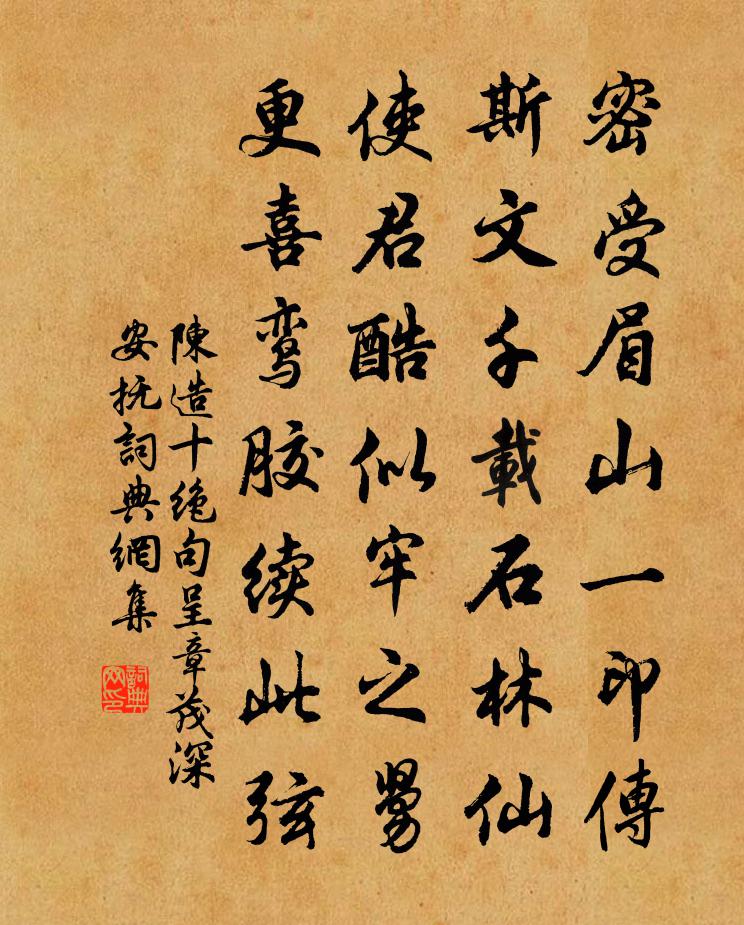 密受眉山一印傳
斯文千載石林仙
使君酷似牢之舅
更喜鸾胶续此弦
陳造十绝句呈章茂深
安抚詞典網集
詞典网印